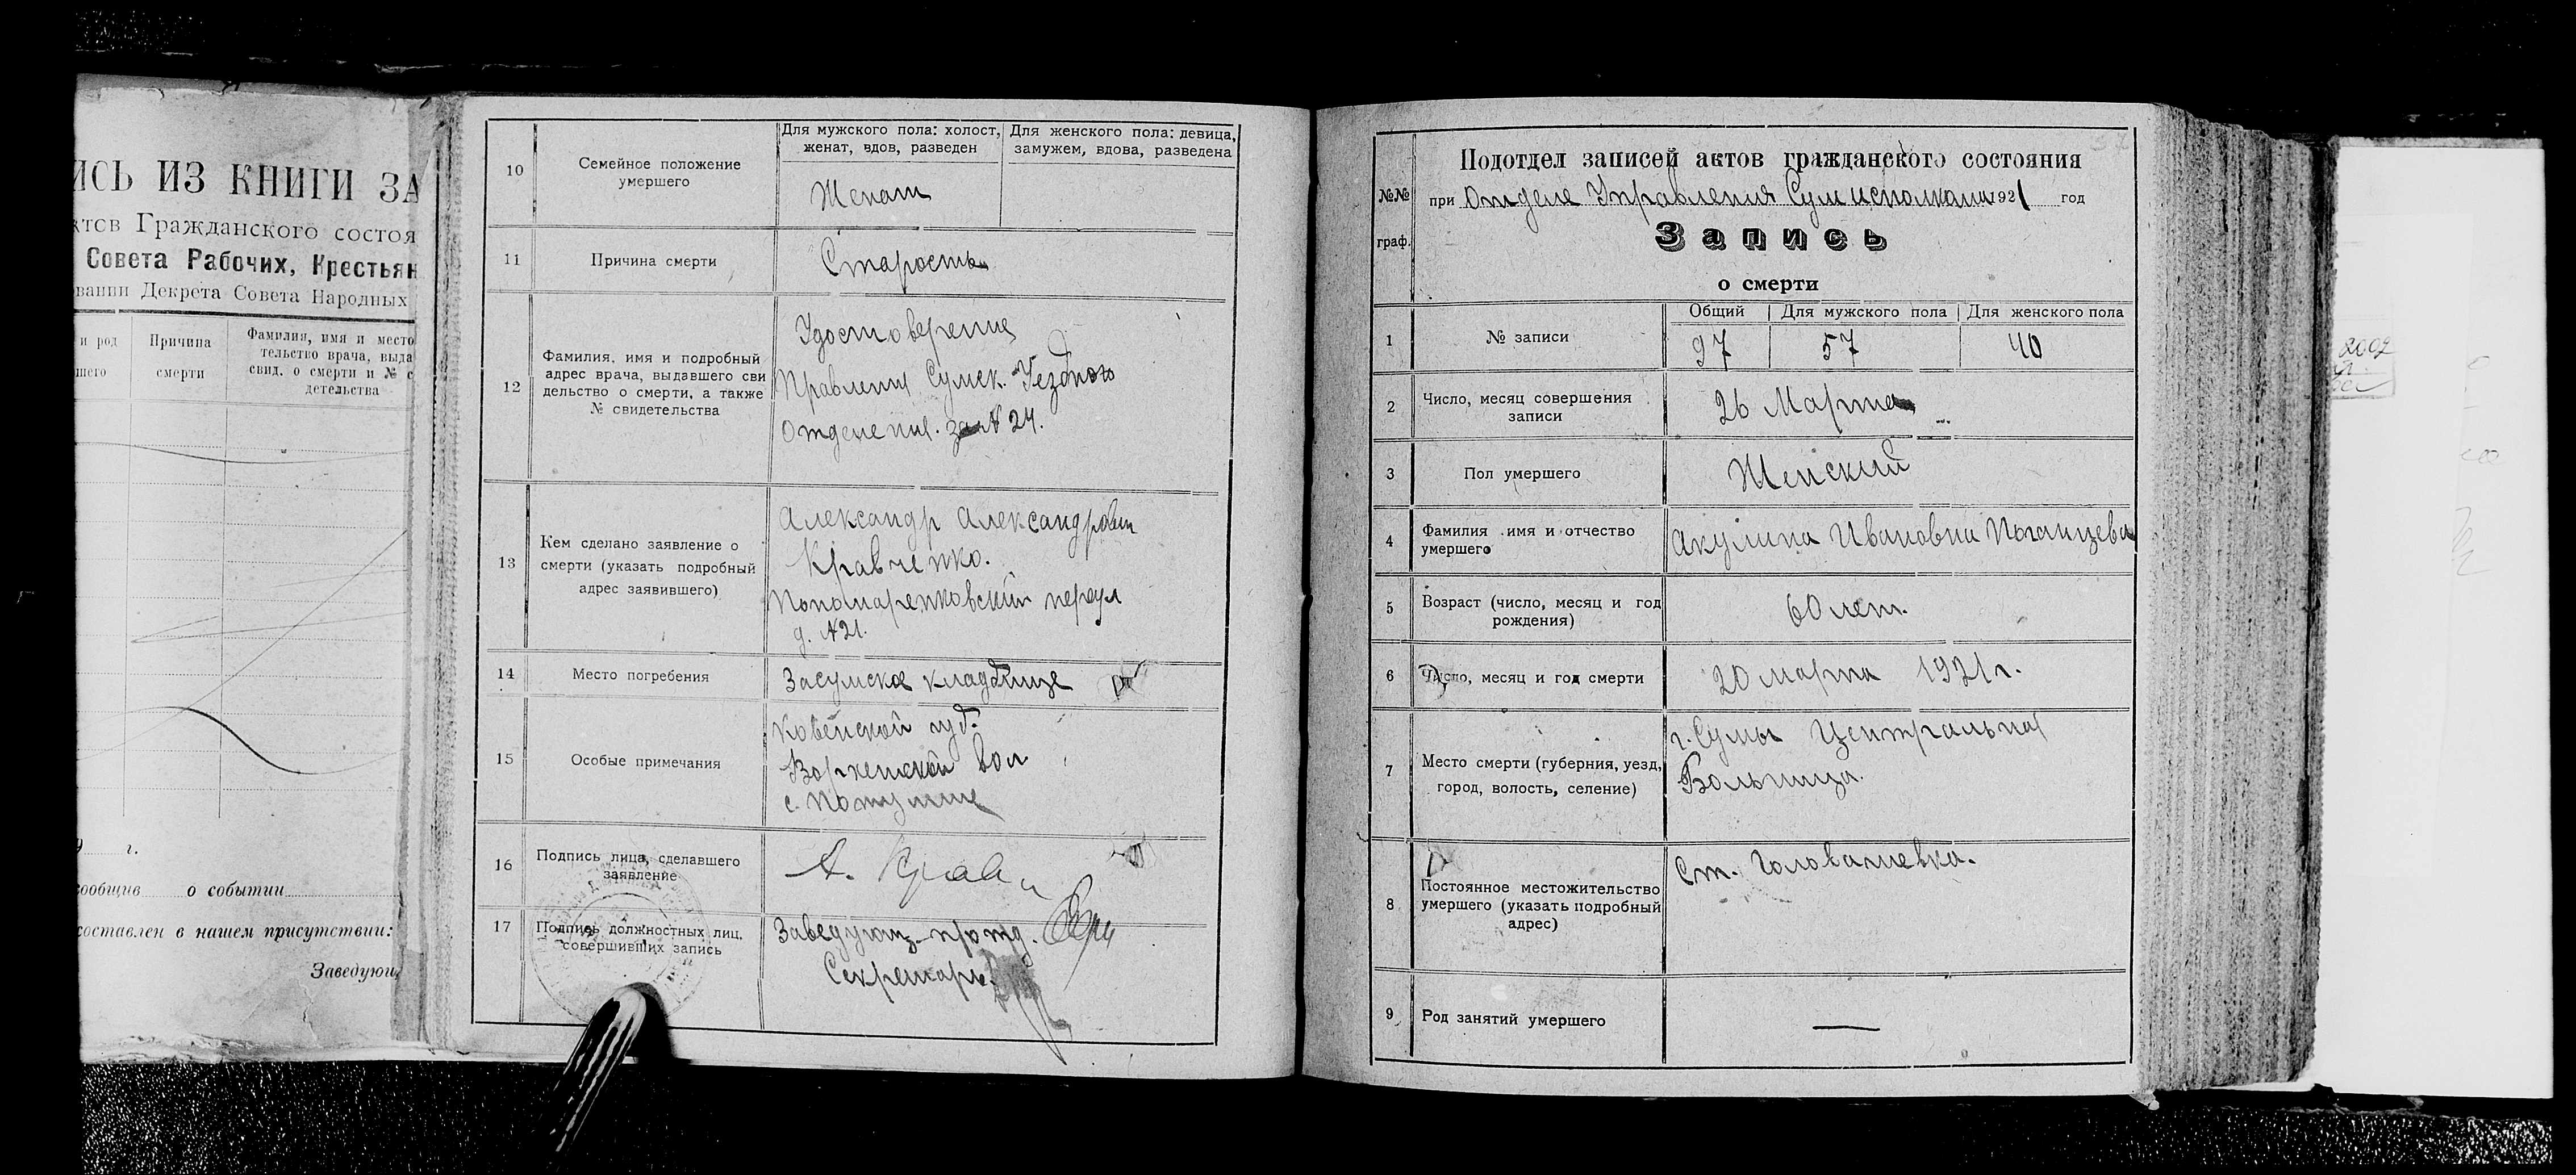 ИСЬ ИЗ КНИГИ ЗА
ктов Гражданского состоя
Совета Рабочих, Крестьян
вании Декрета Совета Народных
и род
шего
Причина
смерти
Фамилия, имя и место
тельство врача, выда
свид. о смерти и № с
детельства
г.
сообщив о событии
составлен в нашем присутствии:
Заведующ
10
Семейное положение
умершего
Для мужского пола: холост,
женат, вдов, разведен
Для женского пола: девица,
замужем, вдова, разведена
Женат
11
Причина смерти
Старость
12
Фамилия, имя и подробный
адрес врача, выдавшего сви
дельство о смерти, а также
№ свидетельства
Удостоверение
Правления Сумск. Уездного
Отделение. за № 24.
13
Кем сделано заявление о
смерти (указать подробный
адрес заявившего)
Александр Александрович
Кравченко.
Пономаренковский переул
д. №21.
14
Место погребения
Засумское кладбище
15
Особые примечания
Ковенской губ.
вол
с.
16
Подпись лица, сделавшего
заявление
А. Кравч
17
Подпись должностных лиц,
совершивших запись
Заведующ.
Секретарь
№№
граф.
Подотдел записей актов гражданского состояния
при Отделе Управления Сумисполкома 1921 год
Запись
о смерти
1
№ записи
Общий
Для мужского пола
Для женского пола
97
57
40
2
Число, месяц совершения
записи
26 Марта
3
Пол умершего
Женский
4
Фамилия имя и отчество
умершего
Акулина Ивановна Поганцева
5
Возраст (число, месяц и год
рождения)
60 лет.
6
Число, месяц и год смерти
20 марта 1921 г.
7
Место смерти (губерния, уезд,
город, волость, селение)
г. Сумы Центральная
Больница.
8
Постоянное местожительство
умершего (указать подробный
адрес)
Ст. Головашевка.
9
Род занятий умершего
—
2002